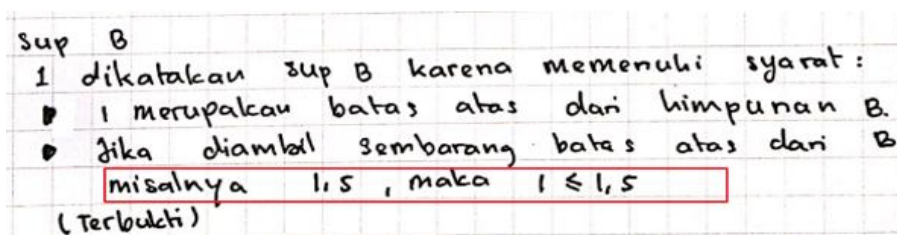 Sup B
1 dikatakan sup B karena memenuhi syarat :
• 1 merupakan batas atas dari himpunan B.
• Jika diambil sembarang batas atas dari B
misalnya 1,5 , maka 1 ≤ 1,5
(Terbukti)